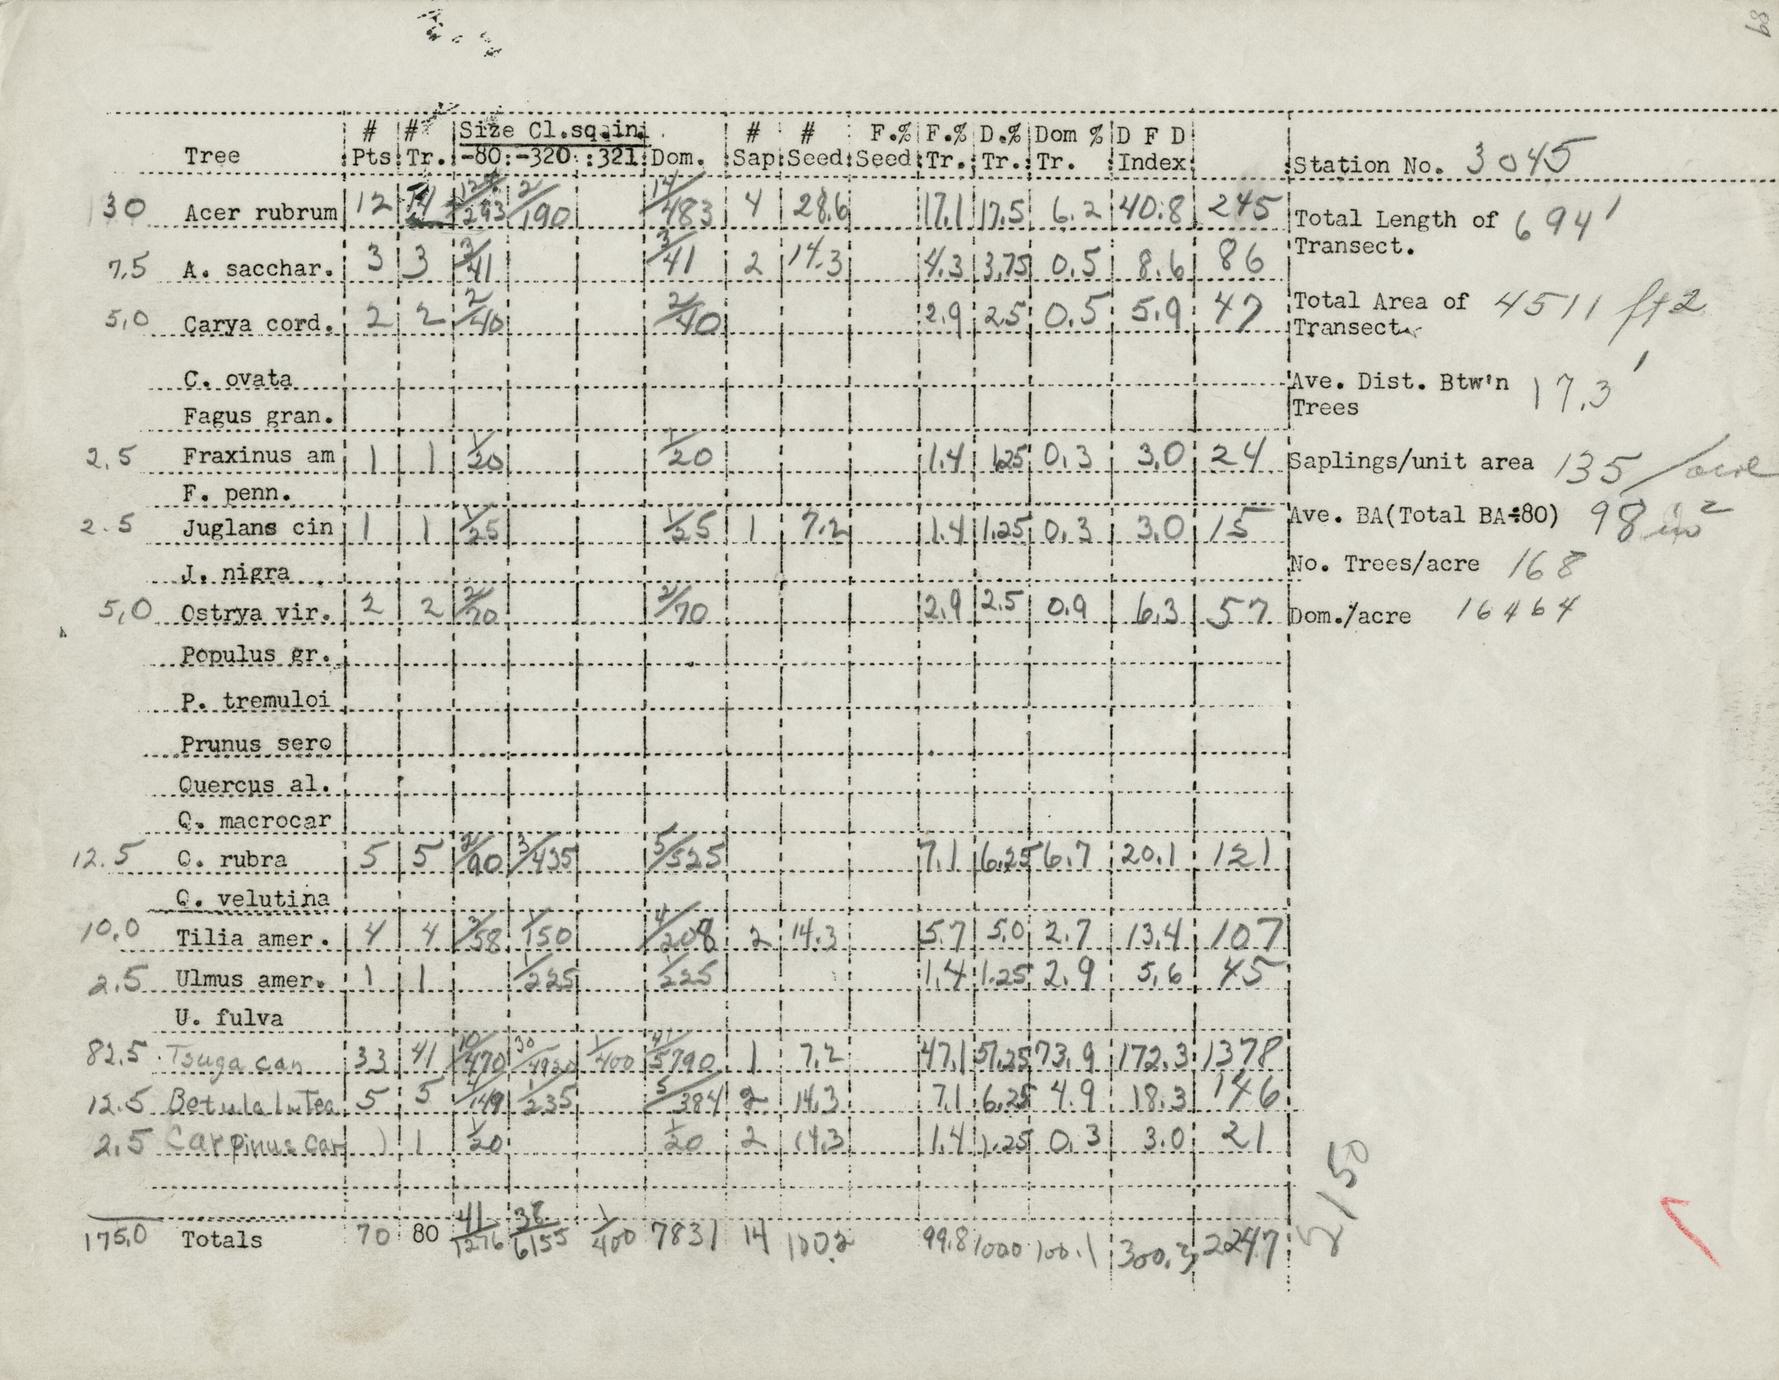 68
# # Size Cl.sq.in. # # F.% F.% D.% Dom % D F D
Tree Pts. Tr. -80: -320 :321 Dom. Sap Seed Seed Tr. Tr. Tr. Index Station No. 3045
30 Acer rubrum 12 14 12/293 2/190 14/483 4 28.6 17.1 17.5 6.2 40.8 245
Total Length of Transect. 694'
7.5 A. sacchar. 3 3 3/41 3/41 2 14.3 4.3 3.75 0.5 8.6 86
5.0 Carya cord. 2 2 2/40 2/40 2.9 2.5 0.5 5.9 47
Total Area of Transect 4511 ft2
C. ovata
Ave. Dist. Btw'n Trees 17.3'
Fagus gran.
2.5 Fraxinus am 1 1 1/20 1/20 1.4 1.25 0.3 3.0 24
Saplings/unit area 135/acre
F. penn.
2.5 Juglans cin 1 1 1/25 1/25 1 7.2 1.4 1.25 0.3 3.0 15
Ave. BA(Total BA÷80) 98 in2
J. nigra
No. Trees/acre 168
5.0 Ostrya vir. 2 2 2/70 2/70 2.9 2.5 0.9 6.3 57
Dom./acre 16464
Populus gr.
P. tremuloi
Prunus sero
Quercus al.
Q. macrocar
12.5 Q. rubra 5 5 2/90 3/435 5/525 7.1 6.25 6.7 20.1 121
Q. velutina
10.0 Tilia amer. 4 4 3/58 1/150 4/208 2 14.3 5.7 5.0 2.7 13.4 107
2.5 Ulmus amer. 1 1 1/225 1/225 1.4 1.25 2.9 5.6 45
U. fulva
82.5 Tsuga can 33 41 10/470 30/4920 1/400 41/5790 1 7.2 47.1 51.25 73.9 172.3 1378
12.5 Betula lutea 5 5 4/149 1/235 5/384 2 14.3 7.1 6.25 4.9 18.3 146
2.5 Carpinus car 1 1 1/20 1/20 2 14.3 1.4 1.25 0.3 3.0 21
175.0 Totals 70 80 41/1276 38/6155 1/400 7831 14 100.2 99.8 100.0 100.1 300.3 2247
2150